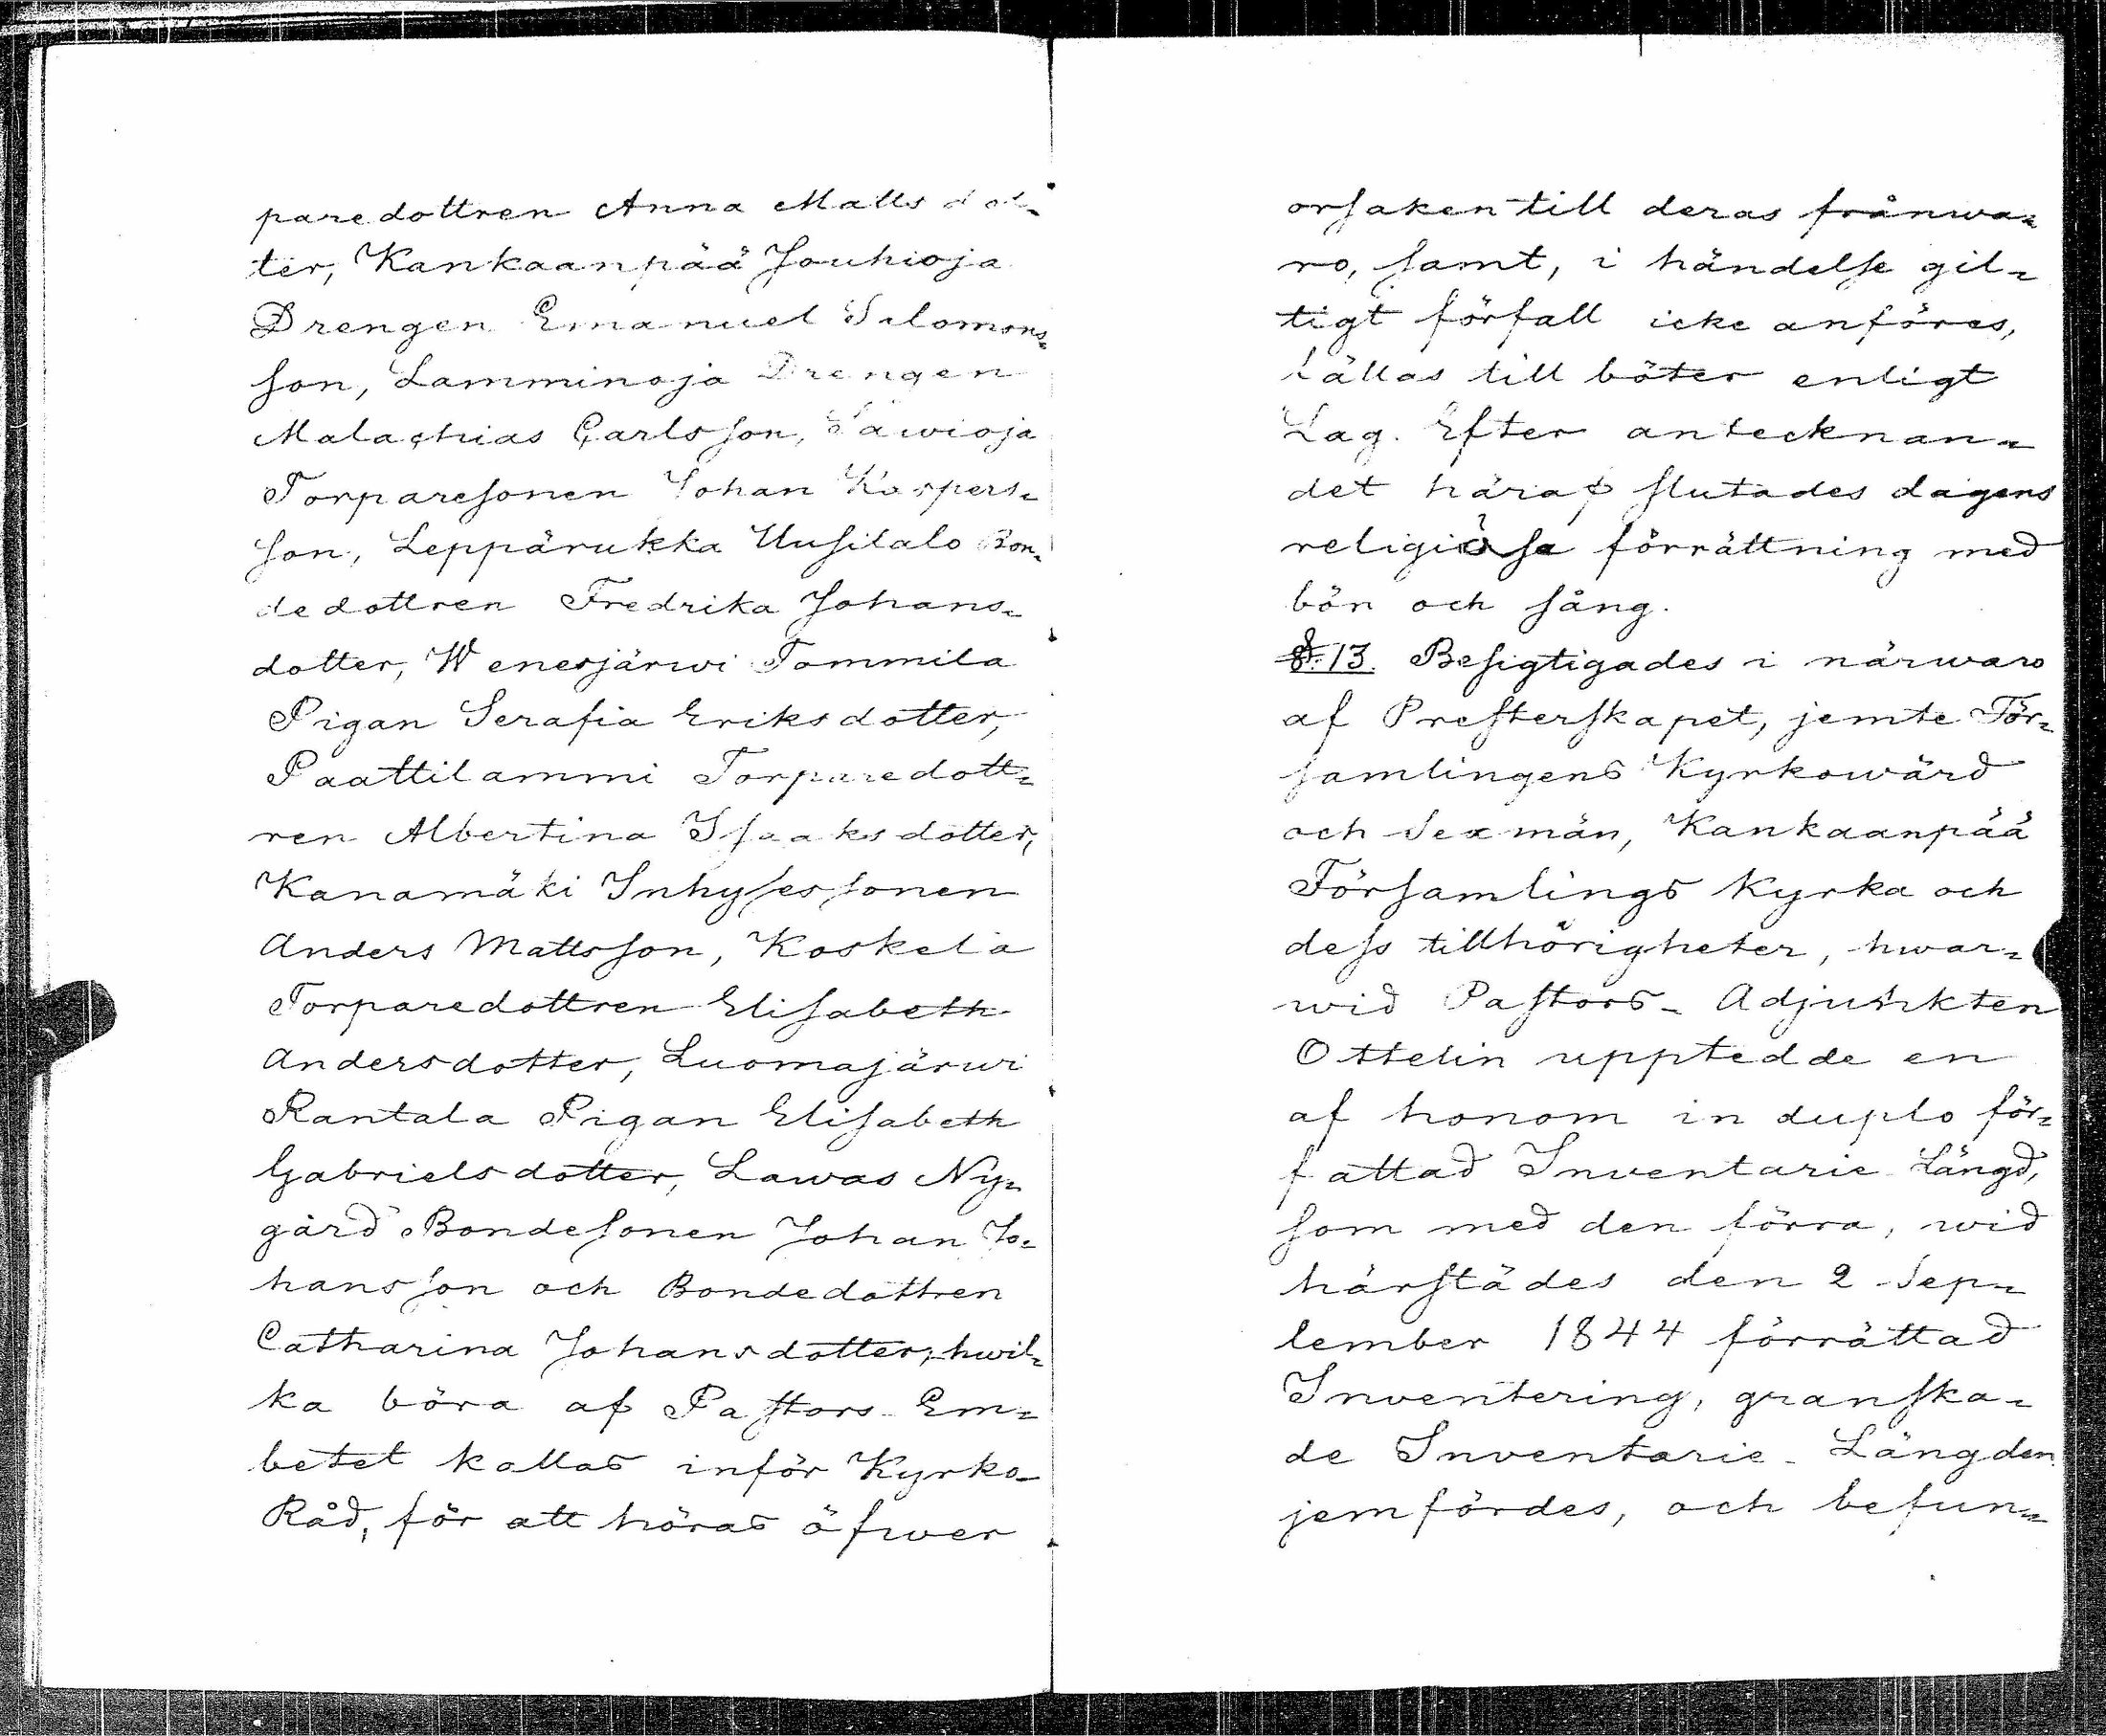 paredottren Anna Matts dot-
ter, Kankaanpää Jouhioja
Drengen Emanuel Salomons-
son, Lamminoja Drengen
Malachias Carlsson, Sawioja
Torparesonen Johan Kaspers-
son, Leppärukka Uusitalo Bon-
dedottren Fredrika Johans-
dotter, Wenesjärwi Tommila
Pigan Serafia Eriksdotter,
Paattilammi Torparedott-
ren Albertina Isaaksdotter,
Kanamäki Inhysessonen
Anders Mattsson, Koskela
Torparedottren Elisabeth
Andersdotter, Luomajärwi
Rantala Pigan Elisabeth
Gabrielsdotter, Lawas Ny-
gård Bondesonen Johan Jo-
hansson och Bondedottren
Catharina Johansdotter, hwil-
ka böra af Pastors Em-
betet kallas inför Kyrko-
Råd, för att höras öfwer
orsaken till deras frånwa-
ro, samt, i händelse gil-
tigt förfall icke anföres,
fällas till böter enligt
Lag. Efter antecknan-
det häraf slutades dagens
religiösa förrättning med
bön och sång.
§. 13. Besigtigades i närwaro
af Presterskapet, jemte För-
samlingens Kyrkowärd
och Sexmän, Kankaanpää
Församlings Kyrka och
dess tillhörigheter, hwar-
wid Pastors-Adjunkten
Ottelin upptedde en
af honom in duplo för-
fattad Inventarie Längd,
som med den förra, wid
härstädes den 2 Sep-
tember 1844 förrättad
Inventering, granska-
de Inventarie-Längden
jemfördes, och befun-